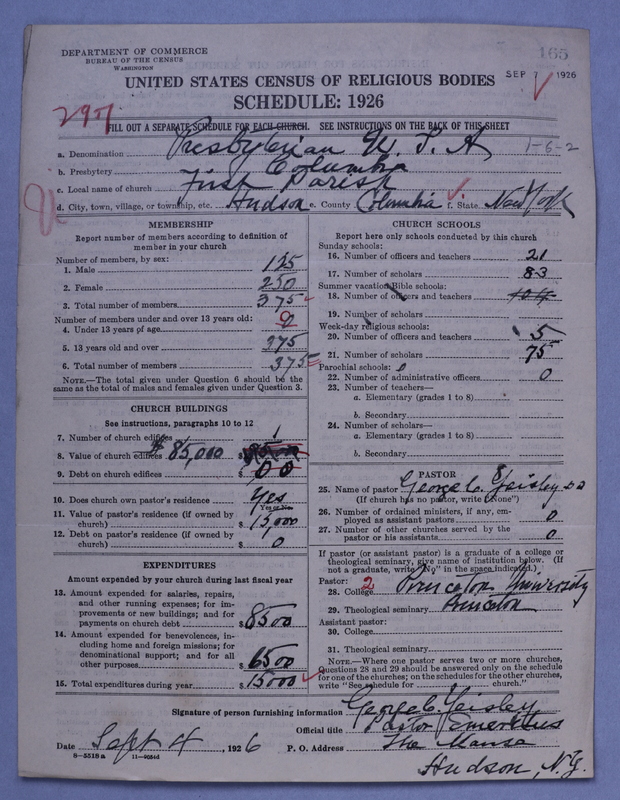 DEPARTMENT OF COMMERCE
BUREAU OF THE CENSUS
WASHINGTON
165
UNITED STATES CENSUS OF RELIGIOUS BODIES
SEP 7 1926
SCHEDULE: 1926
297
FILL OUT A SEPARATE SCHEDULE FOR EACH CHURCH. SEE INSTRUCTIONS ON THE BACK OF THIS SHEET
a. Denomination Presbyterian U. S. A 1-6-2
b. Presbytery Columbia
c. Local name of church First Parish
d. City, town, village, or township, etc. Hudson e. County Columbia f. State New York
MEMBERSHIP
Report number of members according to definition of member in your church
Number of members, by sex:
1. Male 125
2. Female 250
3. Total number of members 375
Number of members under and over 13 years old:
4. Under 13 years of age 0
5. 13 years old and over 375
6. Total number of members 375
NOTE.—The total given under Question 6 should be the same as the total of males and females given under Question 3.
CHURCH BUILDINGS
See instructions, paragraphs 10 to 12
7. Number of church edifices 1
8. Value of church edifices $85,000 $
9. Debt on church edifices $ 00
10. Does church own pastor's residence Yes
Yes or No
11. Value of pastor's residence (if owned by church) $15,000
12. Debt on pastor's residence (if owned by church) $ 0
EXPENDITURES
Amount expended by your church during last fiscal year
13. Amount expended for salaries, repairs, and other running expenses; for improvements or new buildings; and for payments on church debt $8500
14. Amount expended for benevolences, including home and foreign missions; for denominational support; and for all other purposes $6500
15. Total expenditures during year $15000
CHURCH SCHOOLS
Report here only schools conducted by this church
Sunday schools:
16. Number of officers and teachers 21
17. Number of scholars 83
Summer vacation Bible schools:
18. Number of officers and teachers 104
19. Number of scholars
Week-day religious schools:
20. Number of officers and teachers 5
21. Number of scholars 75
Parochial schools: 0
22. Number of administrative officers 0
23. Number of teachers—
a. Elementary (grades 1 to 8)
b. Secondary
24. Number of scholars—
a. Elementary (grades 1 to 8)
b. Secondary
PASTOR
25. Name of pastor George C. Yeisley D D
(If church has no pastor, write "None")
26. Number of ordained ministers, if any, employed as assistant pastors 0
27. Number of other churches served by the pastor or his assistants 0
If pastor (or assistant pastor) is a graduate of a college or theological seminary, give name of institution below. (If not a graduate, write "No" in the space indicated.)
Pastor:
28. College 2 Princeton University
29. Theological seminary Princeton
Assistant pastor:
30. College
31. Theological seminary
NOTE.—Where one pastor serves two or more churches, Questions 28 and 29 should be answered only on the schedule for one of the churches; on the schedules for the other churches, write "See schedule for church."
Signature of person furnishing information George C. Yeisley
Official title Pastor Emeritus
Date Sept 4, 1926 P. O. Address The Manse
8-5518a 11-9054d Hudson, N.Y.